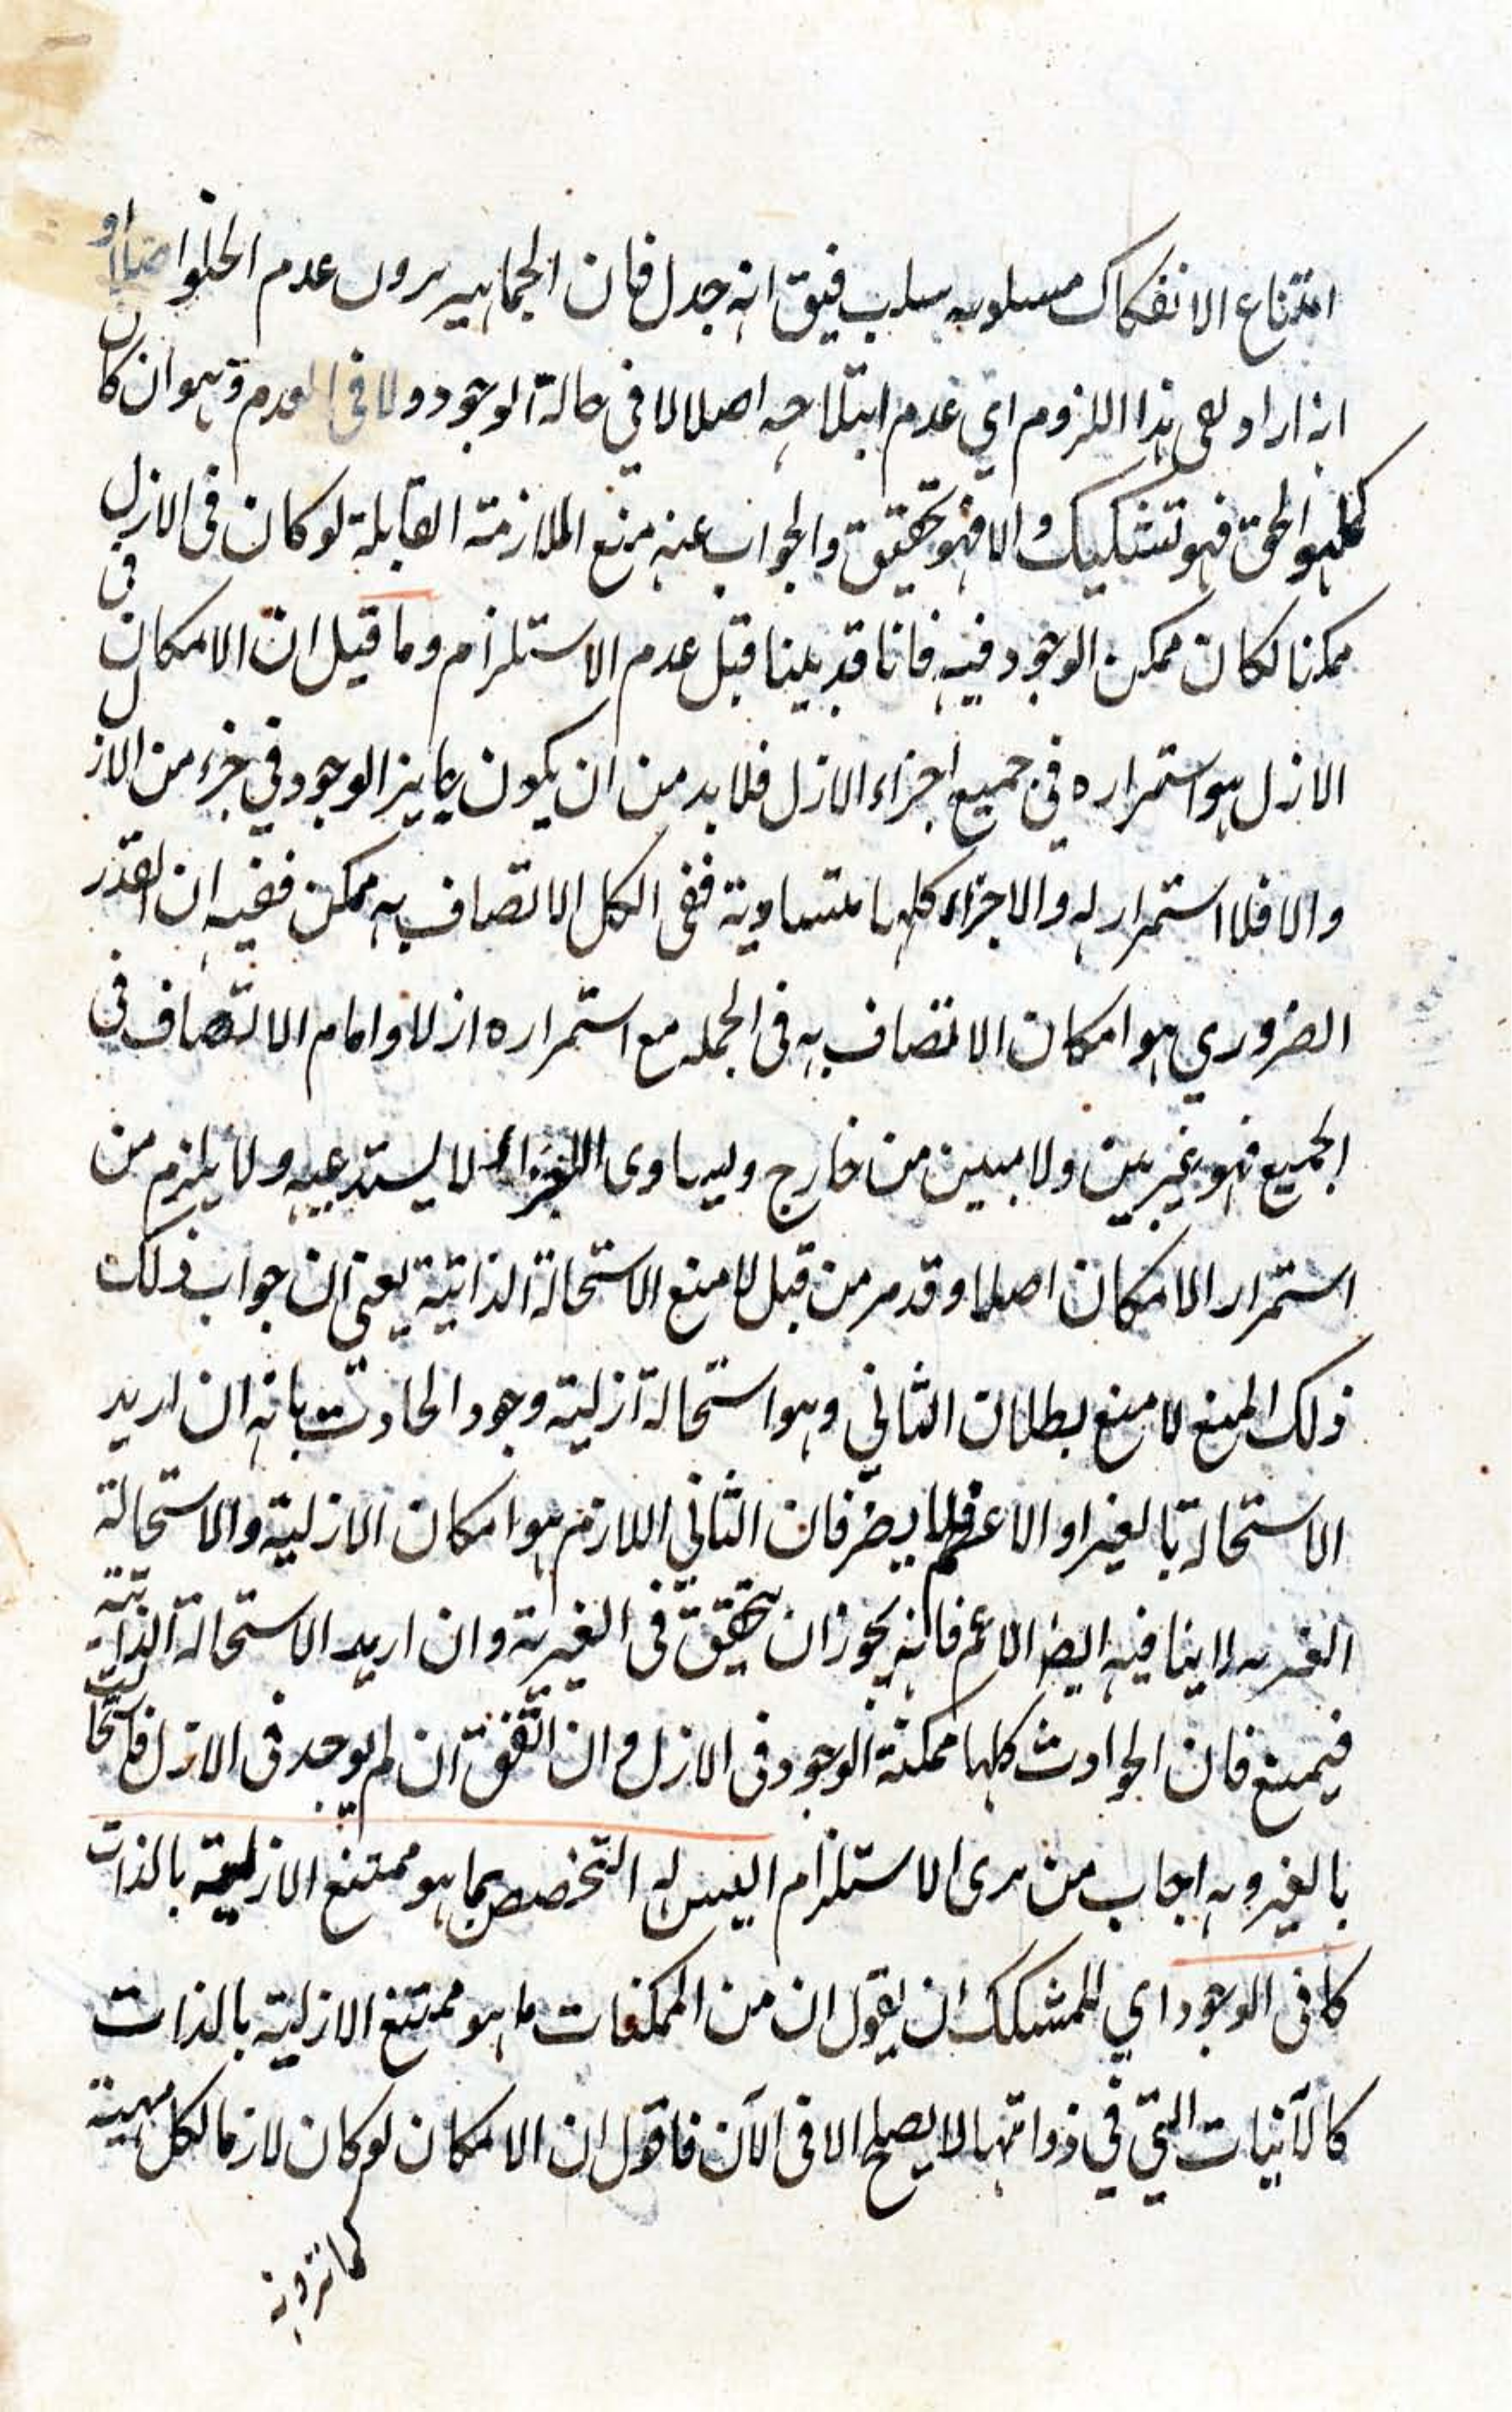 امتناع الانفكاك مسلوبه سلب فيق انه جدل فان الجماهير يرون عدم الخلو اصلا او
ان ارادوا هذا اللزوم اي عدم اصلا لا في حالة الوجود ولا في العدم وهو ان كان
كما هو الحق فهو تشكيك والا فهو تحقيق والجواب عنه منع الملازمة القابلة لو كان في الازل
ممكنا لكان ممكن الوجود فيه فانا قد بينا قبل عدم الاستلزام وما قيل ان الامكان في
الازل هو استمراره في جميع اجزاء الازل فلا بد من ان يكون جايز الوجود في جزء من الازل
والا فلا استمرار له والاجزاء كلها متساوية ففي الكل الاتصاف به ممكن ففيه ان القدر
الضروري هو امكان الاتصاف به في الجمله مع استمراره ازلا واما الاتصاف في
الجميع فهو غير بين ولا مبين من خارج وتساوى الاجزاء لا يستدعيه ولا يلزم من
استمرار الامكان اصلا وقد مر من قبل لا منع الاستحالة الذاتية يعني ان جواب ذلك
ذلك المنع لا منع بطلان الثاني وهو استحالة ازلية وجود الحادث بانه ان اريد
الاستحالة بالغير او الاعم فلا يضر فان الثاني اللازم هو امكان الازلية والاستحالة
الغيريه لا ينافيه ايضا الاعم فانه يجوز ان يتحقق في الغيرية وان اريد الاستحالة الذاتية
فيمنع فان الحوادث كلها ممكنة الوجود في الازل وان اتفق ان لم يوجد في الازل فاستحالت
بالغير وبه اجاب من يرى الاستلزام اليس له التخصص بما هو ممتنع الازلية بالذات
كما في الوجود اي للمشكك ان يقول ان من الممكنات ما هو ممتنع الازلية بالذات
كالآنيات التي في ذواتها لا يصلح الا في الآن فاقول ان الامكان لو كان لازما لكل مهية
كما ترونه